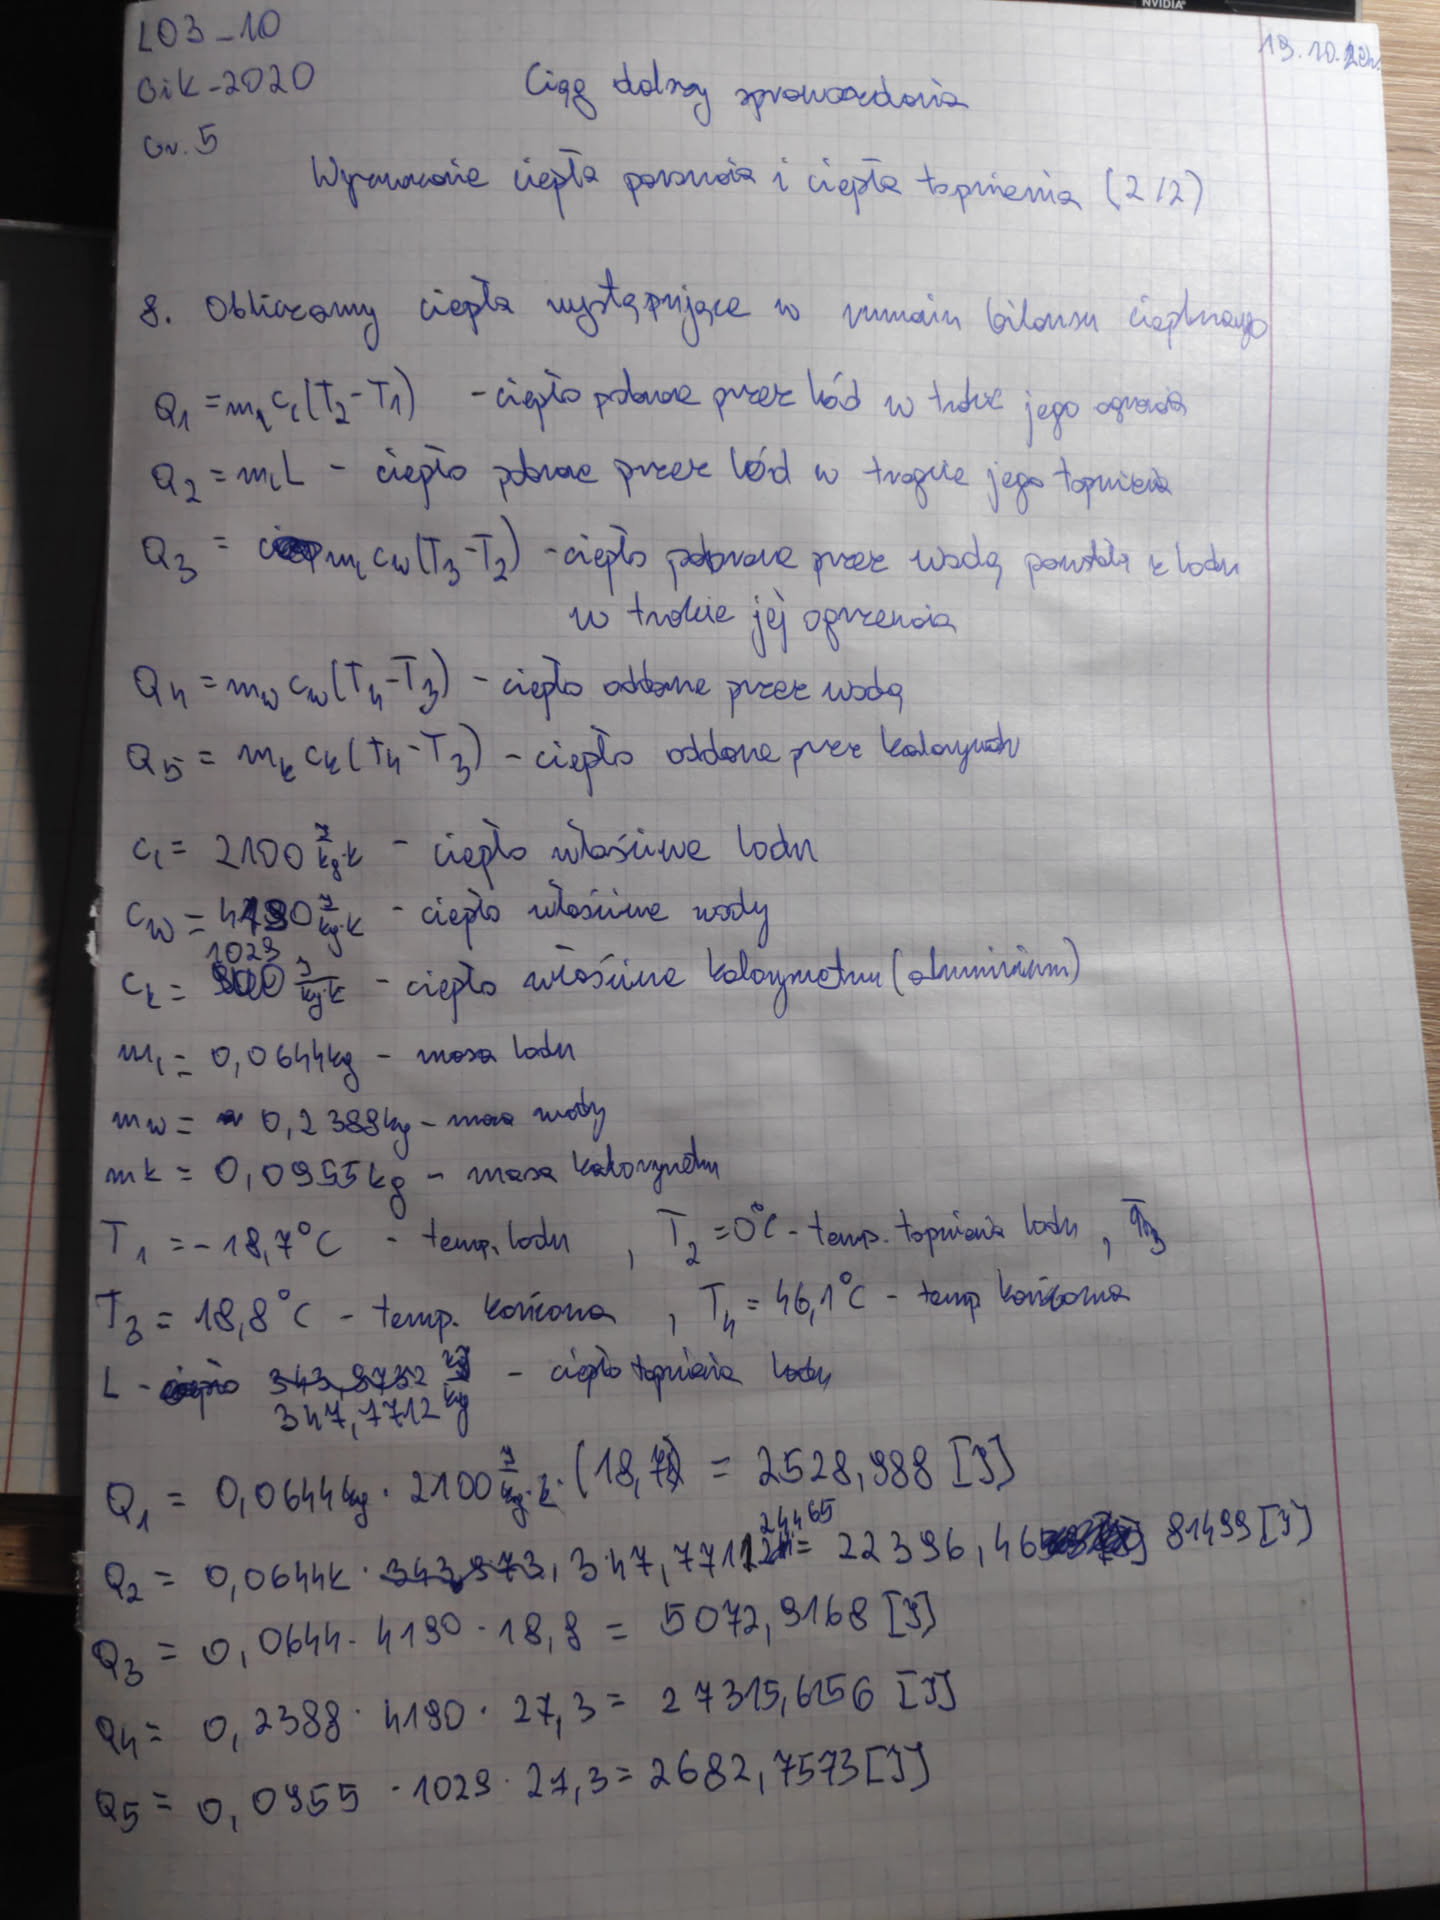 NVIDIA
L03-10
GiK-2020
Gr. 5
19.10.20r.
Ciąg dalszy sprawozdania
Wyznaczanie ciepła parowania i ciepła topnienia (2/2)
8. Obliczamy ciepła występujące w bilansu cieplnego
Q1 = mL cL (T2 - T1) - ciepło pobrane przez lód w trakcie jego ogrzania
Q2 = mL L - ciepło pobrane przez lód w trakcie jego topnienia
Q3 = mL cw (T3 - T2) - ciepło pobrane przez wodę powstałą z lodu
w trakcie jej ogrzewania
Q4 = mw cw (T4 - T3) - ciepło oddane przez wodę
Q5 = mk ck (T4 - T3) - ciepło oddane przez kalorymetr
cL = 2100 J/kg·K - ciepło właściwe lodu
cw = 4190 J/kg·K - ciepło właściwe wody
1029
ck = 900 J/kg·K - ciepło właściwe kalorymetru (aluminium)
mL = 0,0644kg - masa lodu
mw = 0,2388kg - masa wody
mk = 0,0955kg - masa kalorymetru
T1 = -18,7°C - temp. lodu , T2 = 0°C - temp. topnienia lodu ,
T3 = 18,8°C - temp. końcowa , T4 = 46,1°C - temp końcowa
L - 343,9732 kJ/kg - ciepło topnienia lodu
347,7712
Q1 = 0,0644kg · 2100 J/kg·K · (18,7) = 2528,988 [J]
24465
Q2 = 0,0644k · 343,973, 347,7711 = 22396,46 81499 [J]
Q3 = 0,0644 · 4190 · 18,8 = 5072,9168 [J]
Q4 = 0,2388 · 4190 · 27,3 = 27315,6156 [J]
Q5 = 0,0955 · 1029 · 27,3 = 2682,7573 [J]